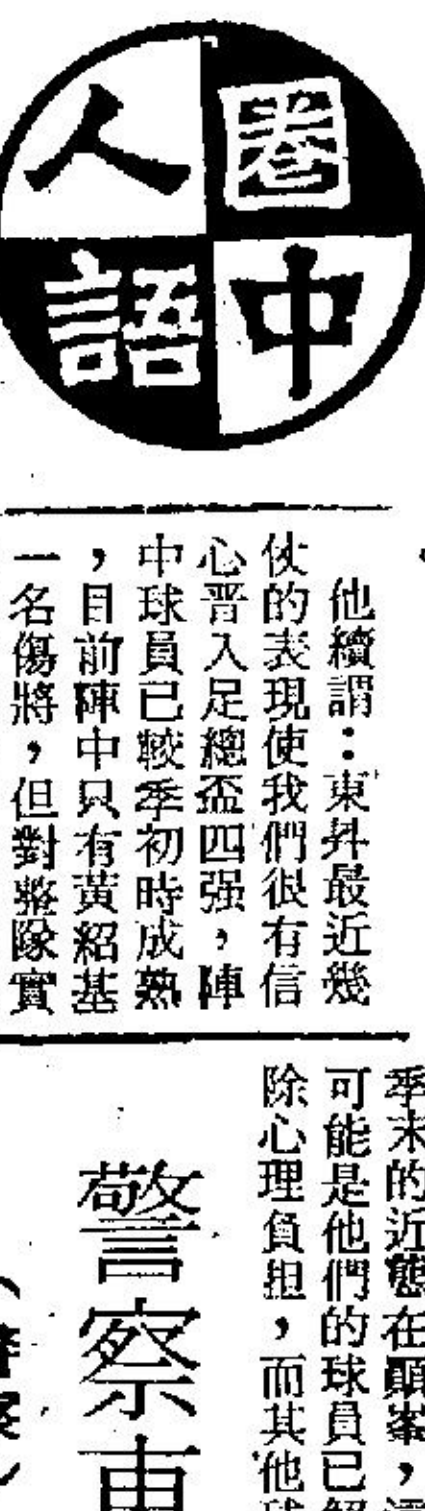 圈中
人語
他續謂：東昇最近幾
仗的表現使我們很有信
心晋入足總盃四强，陣
中球員已較季初時成熟
，目前陣中只有黃紹基
一名傷將，但對整隊實
季末的近態在顚峯，
可能是他們的球員已
除心理負担，而其他
警察
（警察